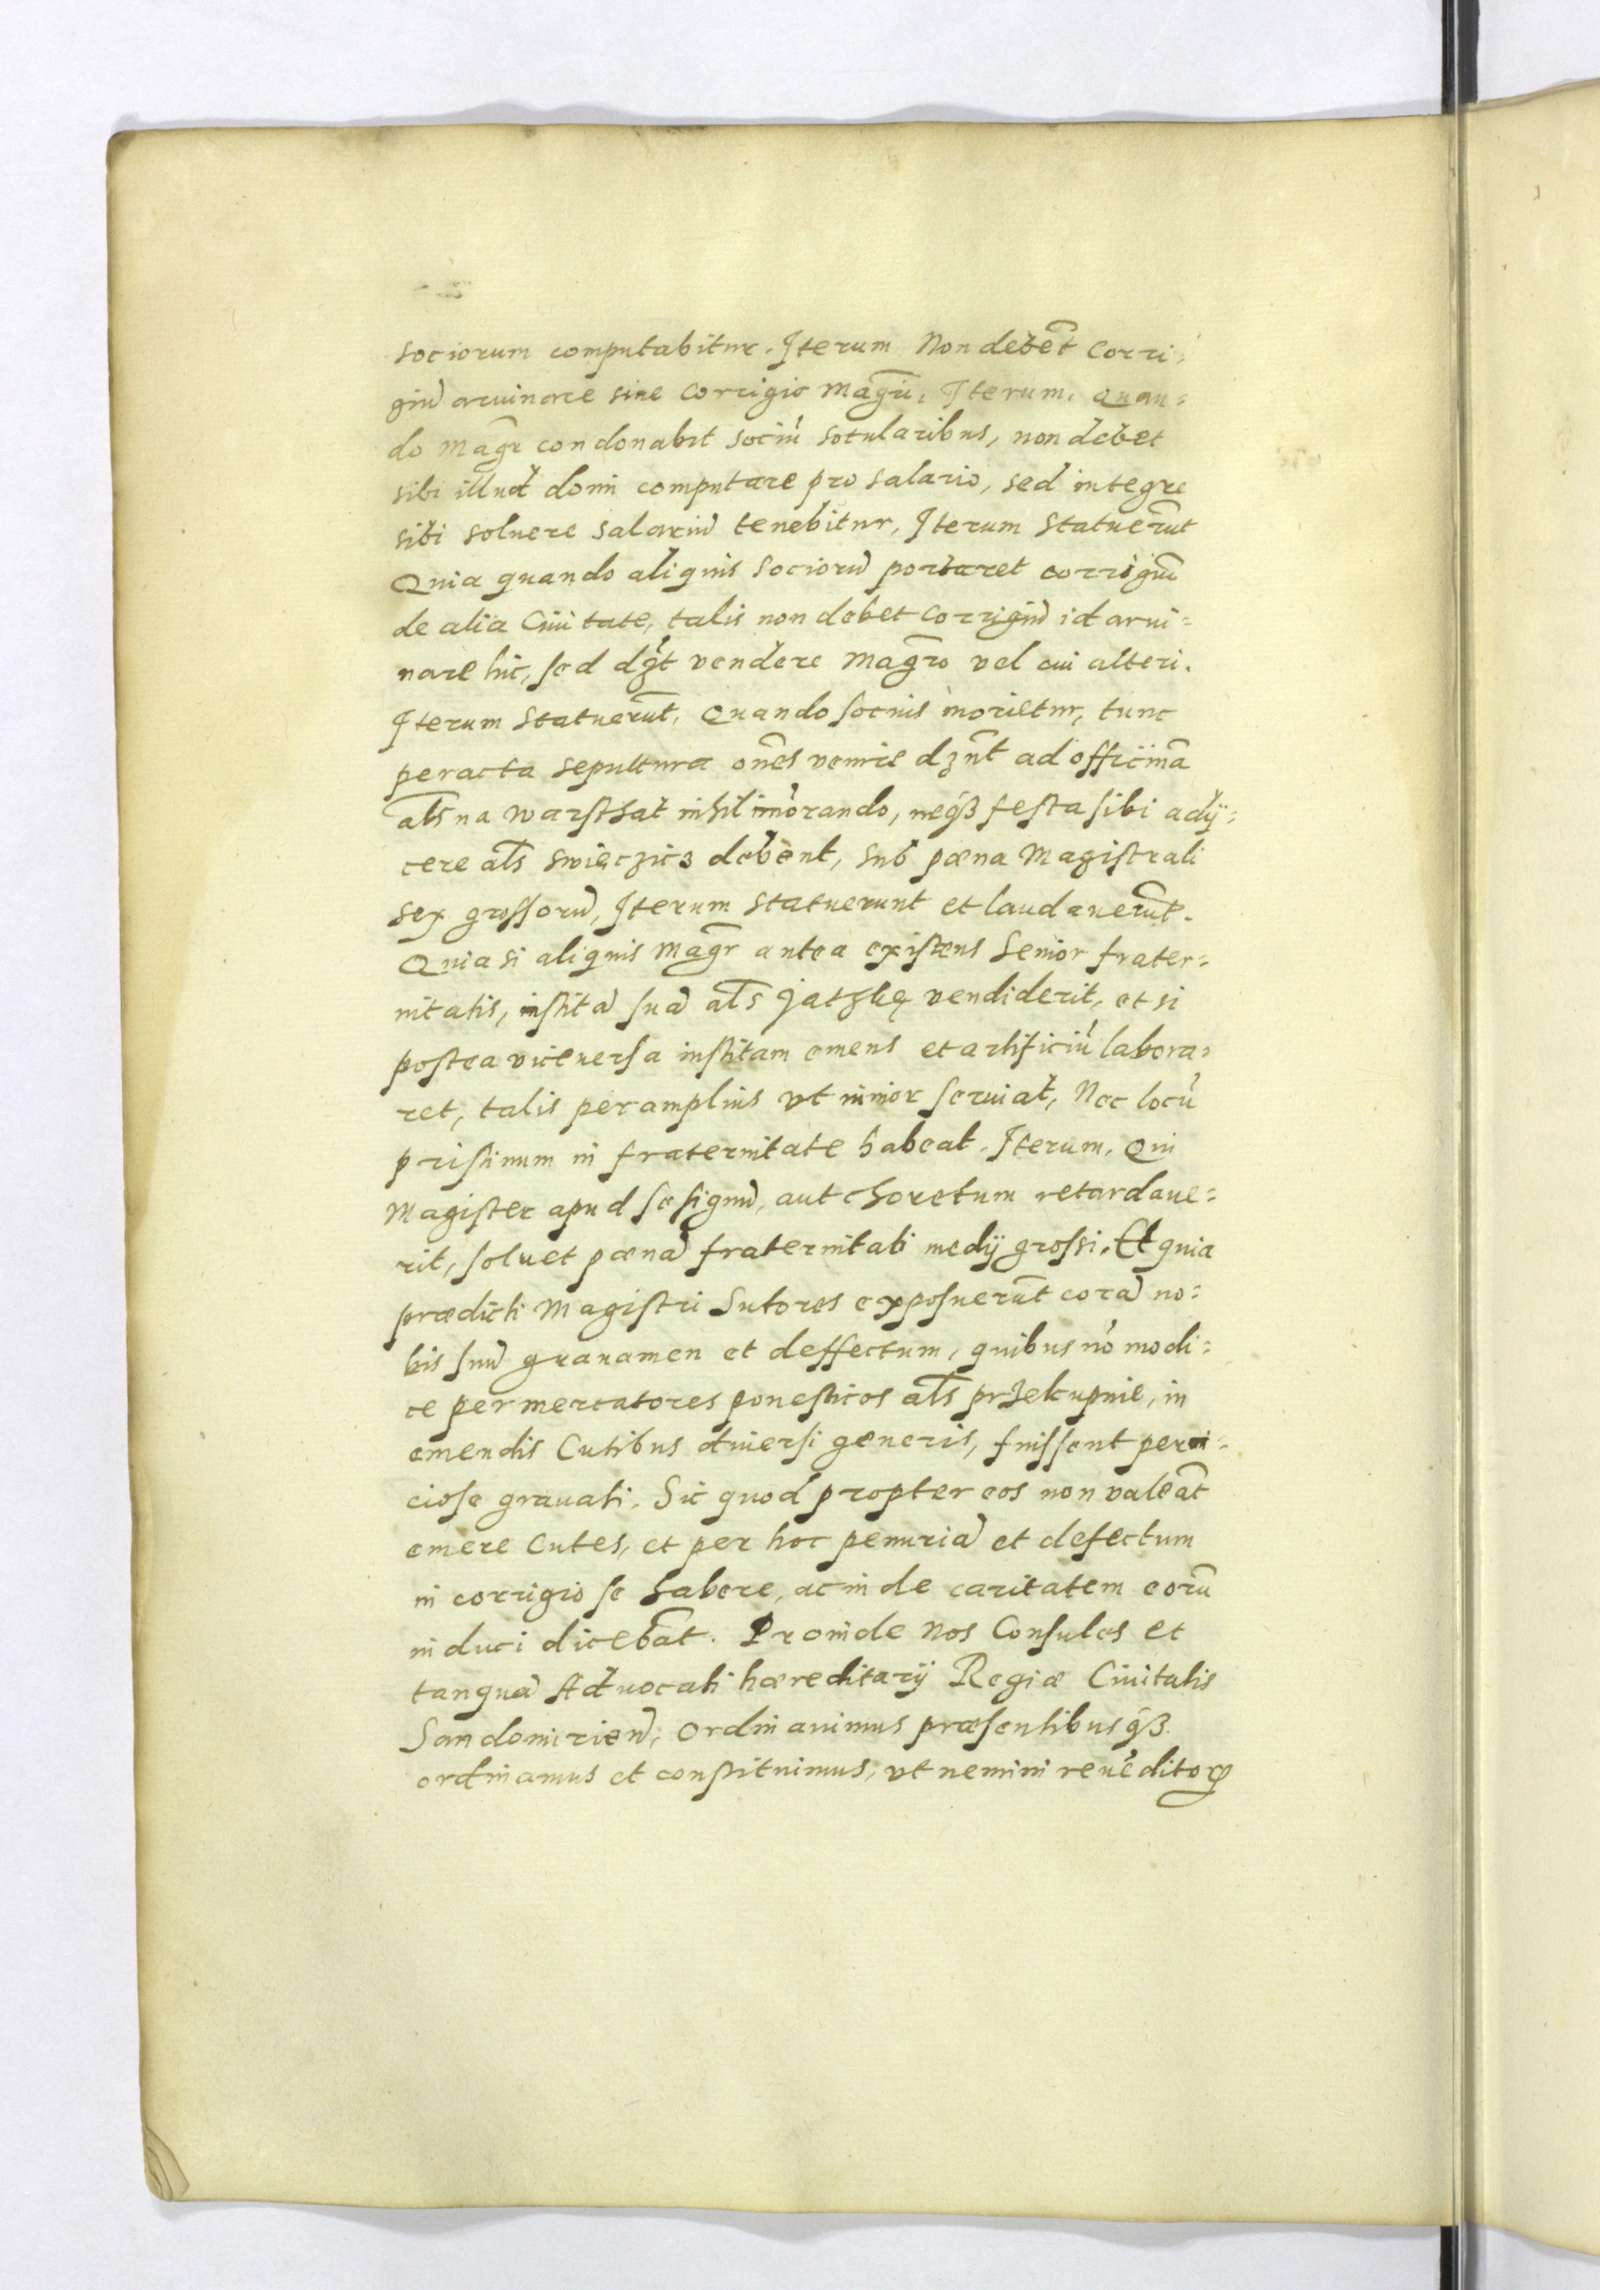 sociorum computabitur. Iterum Non debēt corri:
giū aruinare sine corrigio magr̄i, Iterum, Quan:
do magr̄ condonabit sociū sotularibus, non debet
sibi illud doni computare pro salario, sed integre
sibi soluere salariū tenebitur, Iterum statuerūt
Quia quando aliquis sociorū portaret corrigiū
de alia Ciuitate, talis non debet corrigiū id arui:
nare hic, sed dʒt vendere magr̄o vel cui alteri.
Iterum statuerūt, Quando socius morietur, tunc
peracta sepultura om̄es venire dʒn̄t ad officinā
al̄s na warsthat nihil īmorando, neqꝫ festa sibi adij:
cere al̄s swięczicz debent, sub pœna magistrali
sex grossorū, Iterum statuerunt et laudauerūt.
Quia si aliquis magr̄ antea existens senior frater:
nitatis, institā suā al̄s jatzkę vendiderit, et si
postea viceuersa institam emens et artificiū labora:
ret, talis peramplius vt iunior seruiat, Nec locū
pristinum in fraternitate habeat. Iterum. Qui
Magister apud se signū, aut choretum retardaue:
rit, soluet pœnā fraternitati medij grossi. Et quia
prædicti Magistri Sutores exposuerūt corā no:
bis suū grauamen et deffectum, quibus nō modi:
ce per mercatores ponesticos al̄s przekupnie, in
emendis Cutibus diuersi generis, fuissent perni:
ciose grauati. Sic quod propter eos non valeāt
emere Cutes, et per hoc penuriā et defectum
in corrigio se habere, ac inde caritatem eorū
induci dicebāt. Proinde Nos Consules et
tanquā Aduocati hæreditarij Regiæ Ciuitatis
Sandomirien̄, ordinauimus præsentibusqꝫ
ordinamus et constituimus, vt nemini reuēditoꝝ